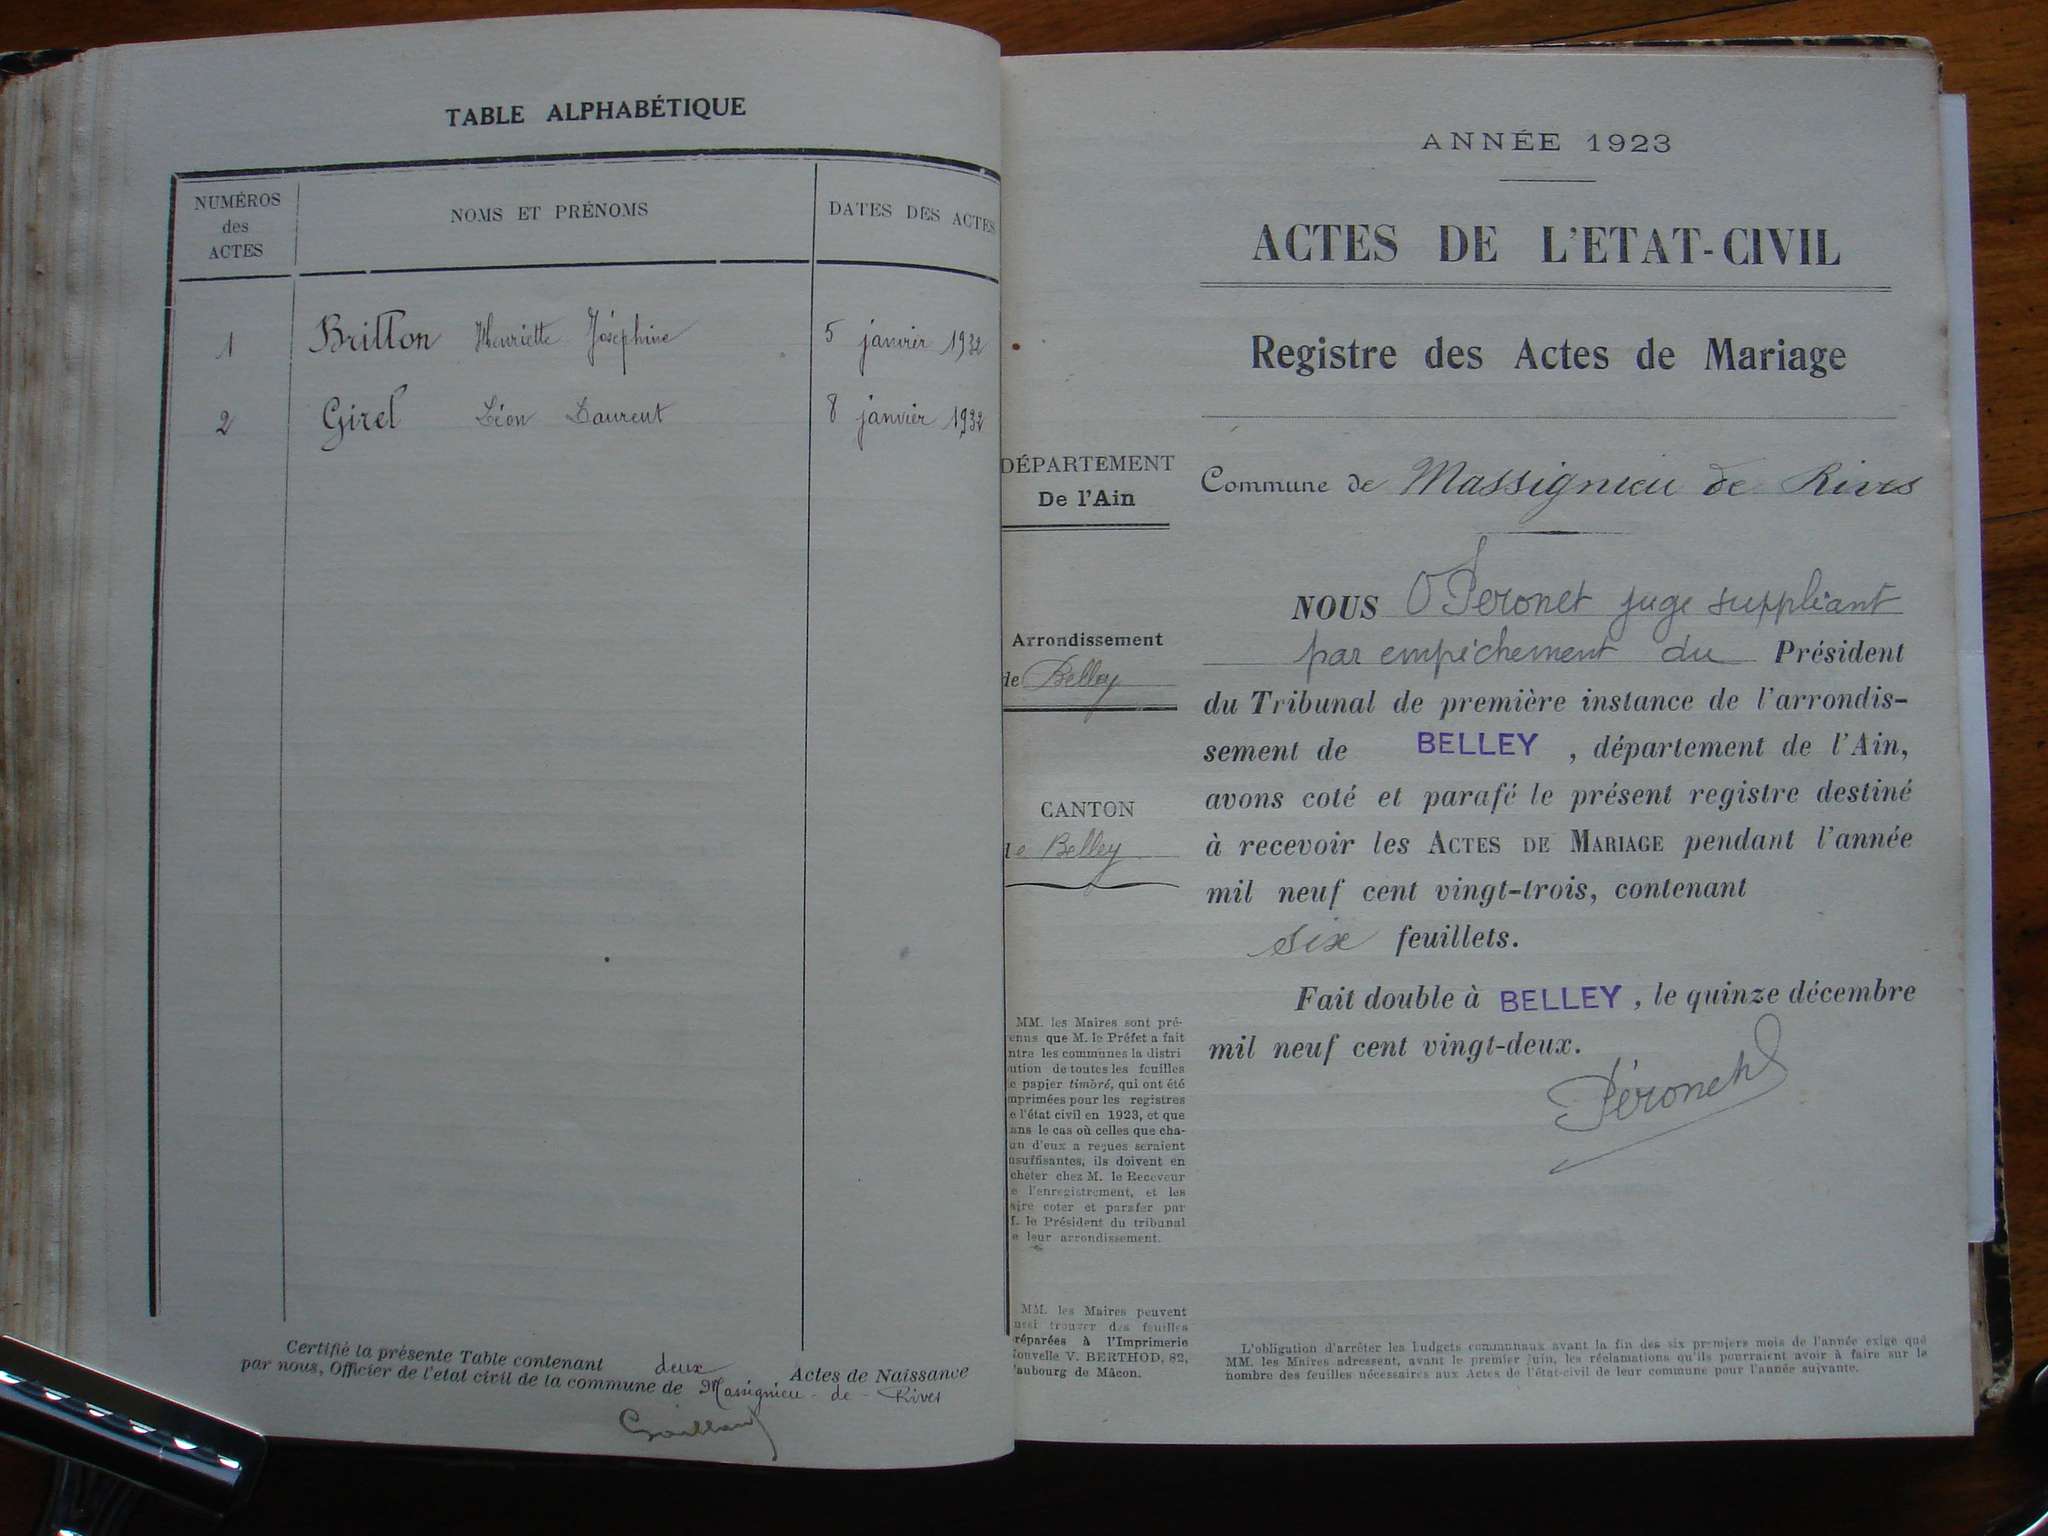 TABLE ALPHABÉTIQUE
NUMÉROS
des
ACTES
NOMS ET PRÉNOMS
DATES DES ACTES
1 Britton Henriette Joséphine 5 janvier 1932
2 Girel Léon Laurent 8 janvier 1932
Certifié la présente Table contenant deux Actes de Naissance
par nous, Officier de l'etat civil de la commune de Massignieu-de-Rives
ANNÉE 1923
ACTES DE L'ETAT-CIVIL
Registre des Actes de Mariage
DÉPARTEMENT
De l'Ain
Arrondissement
de Belley
CANTON
de Belley
MM. les Maires sont pré-
enus que M. le Préfet a fait
ntre les communes la distri
ution de toutes les feuilles
e papier timbré, qui ont été
mprimées pour les registres
e l'état civil en 1923, et que
ans le cas où celles que cha-
un d'eux a reçues seraient
nsuffisantes, ils doivent en
cheter chez M. le Receveur
e l'enregistrement, et les
aire coter et parafer par
M. le Président du tribunal
e leur arrondissement.
MM. les Maires peuvent
ussi trouver des feuilles
réparées à l'Imprimerie
ouvelle V. BERTHOD, 82,
aubourg de Mâcon.
Commune de Massignieu de Rives
NOUS Péronet juge suppléant
par empêchement du Président
du Tribunal de première instance de l'arrondis-
sement de BELLEY, département de l'Ain,
avons coté et parafé le présent registre destiné
à recevoir les ACTES DE MARIAGE pendant l'année
mil neuf cent vingt-trois, contenant
six feuillets.
Fait double à BELLEY, le quinze décembre
mil neuf cent vingt-deux.
Péronet
L'obligation d'arrêter les budgets communaux avant la fin des six premiers mois de l'année exige que
MM. les Maires adressent, avant le premier juin, les réclamations qu'ils pourraient avoir à faire sur le
nombre des feuilles nécessaires aux Actes de l'état-civil de leur commune pour l'année suivante.